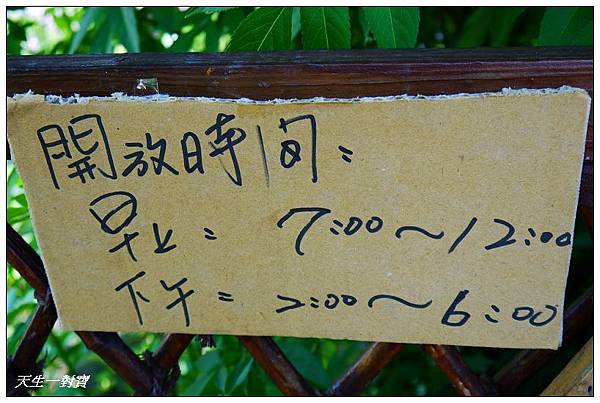 開放時間：
早上： 7:00～12:00
下午： 2:00～6:00
天生一對寶